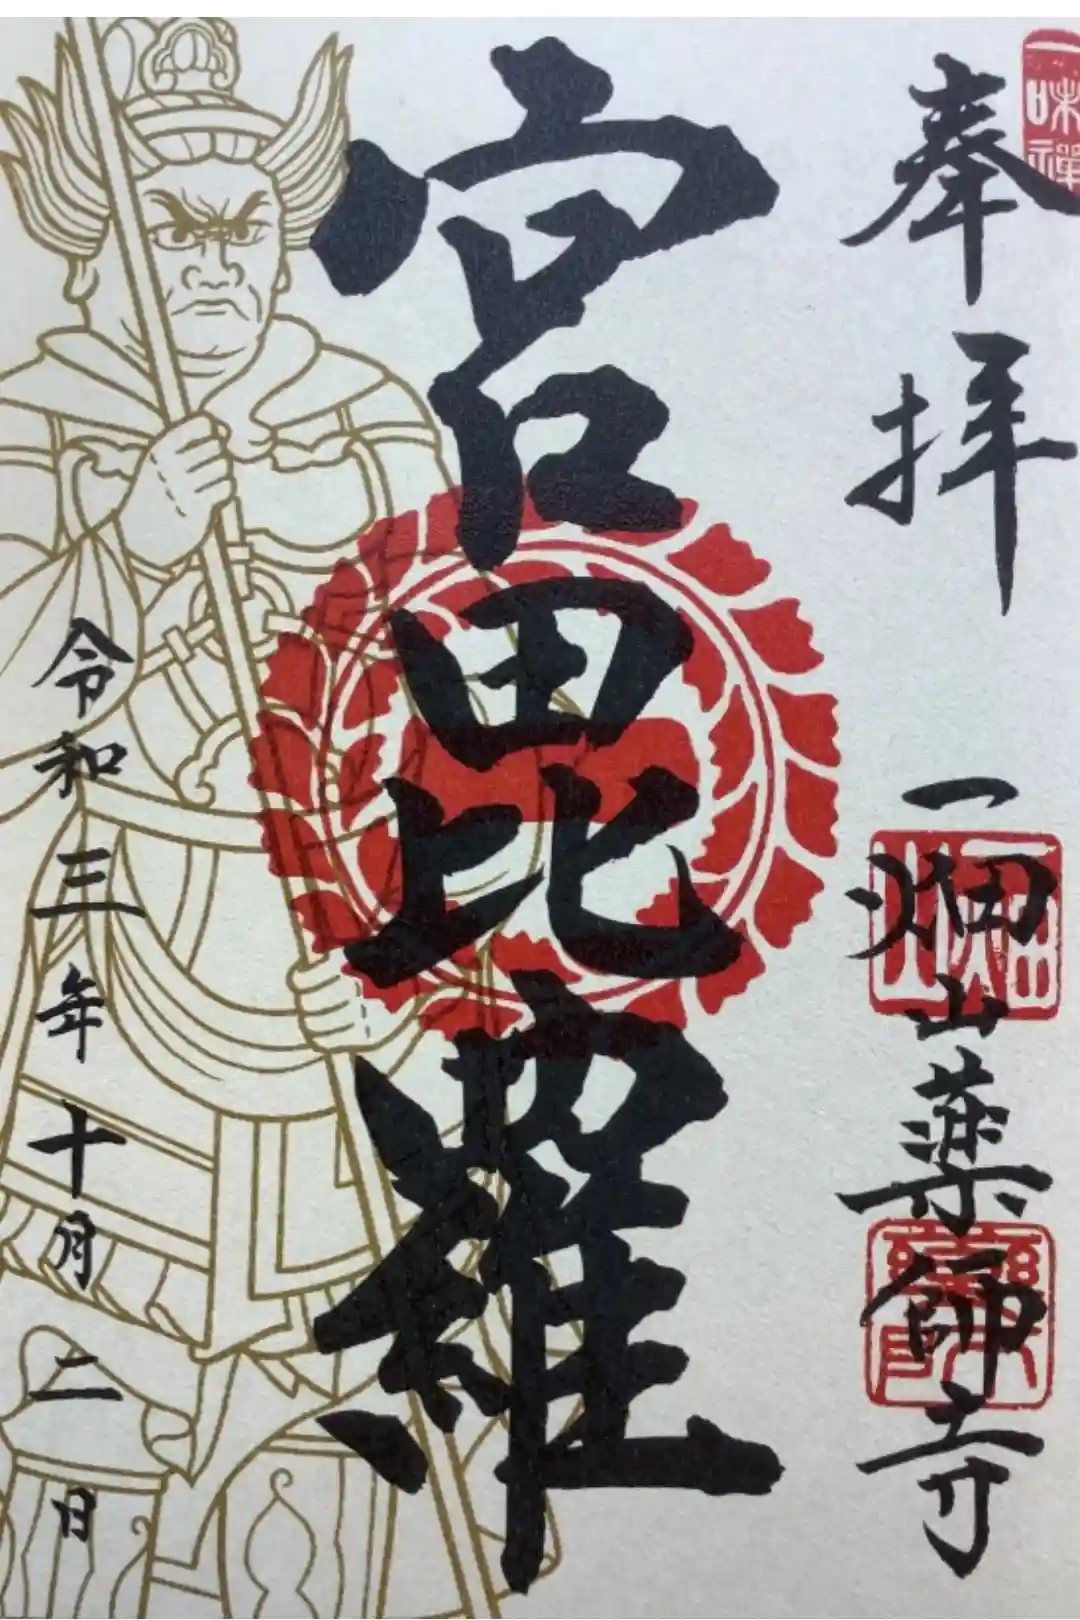 一味禪
奉拝
一畑山薬師寺
宮毘羅
令和三年十月二日